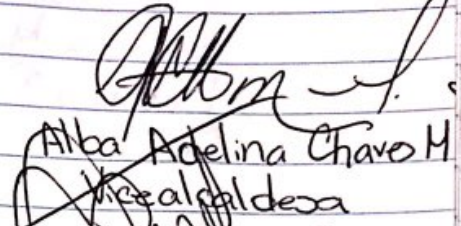 Alba Adelina Chavo M
Vicealcaldesa